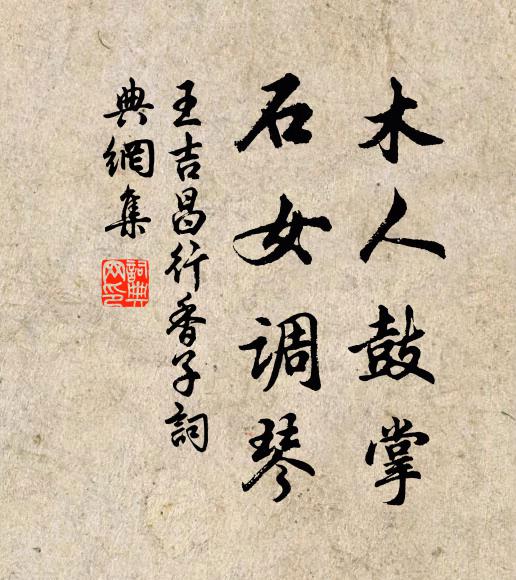 木人鼓掌
石女调琴
王吉昌行香子詞
典網集
詞典網印